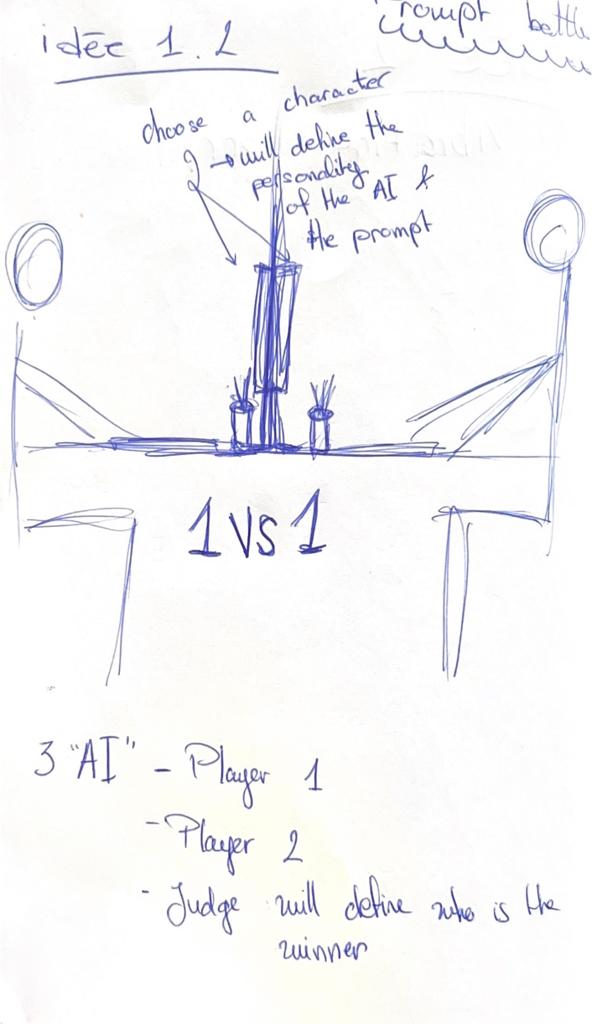 idée 1.2
Prompt battle
choose a character
→ will define the
personality
of the AI &
the prompt
1 VS 1
3 "AI" - Player 1
- Player 2
- Judge will define who is the
winner